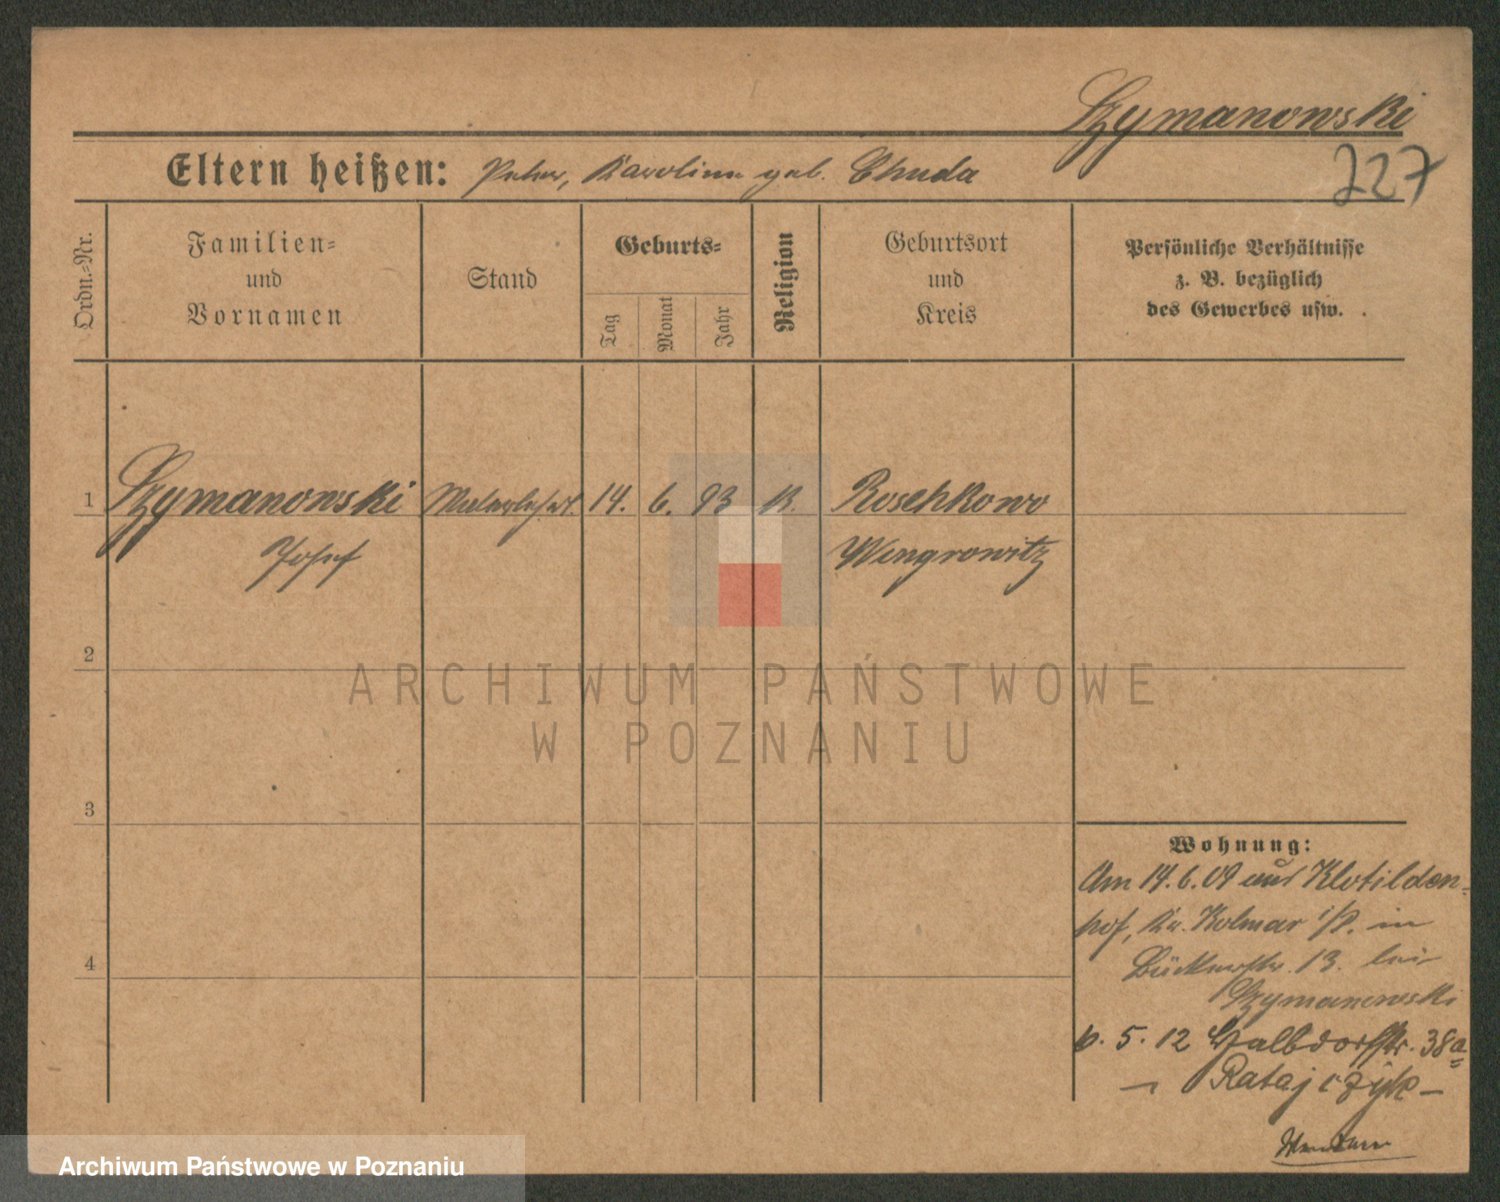 Szymanowski
727
Eltern heißen: Peter, Karoline geb. Chuda
Ordn.-Nr.
Familien-
und
Vornamen
Stand
Geburts-
Tag
Monat
Jahr
Religion
Geburtsort
und
Kreis
Persönliche Verhältnisse
z. B. bezüglich
des Gewerbes usw.
1 Szymanowski Malerlehrl. 14. 6. 93 K. Roschkowo
Josef Wongrowitz
2
3
4
Wohnung:
Am 14.6.09 aus Klotilden-
hof, Kr. Kolmar i/P. in
Bäckerstr. 13. bei
Szymanowski
6. 5. 12 Halbdorfstr. 38a
Ratajczyk
ARCHIWUM PAŃSTWOWE
W POZNANIU
Archiwum Państwowe w Poznaniu